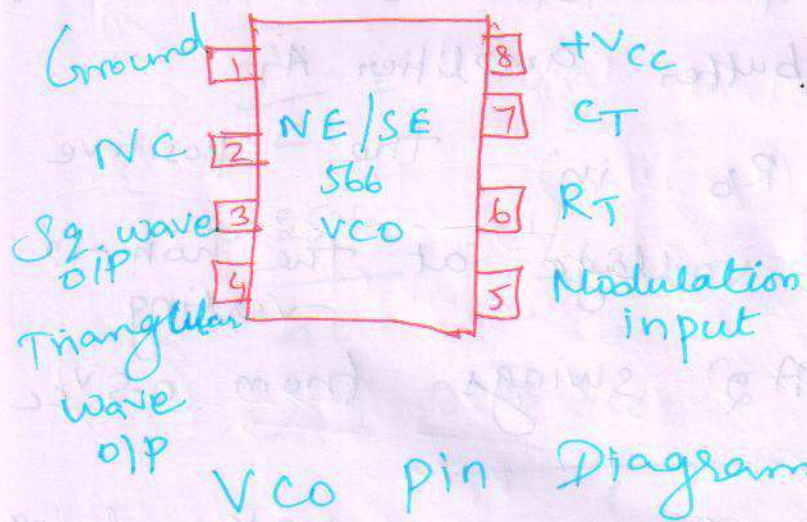 Ground 1
NC 2
Sq. wave o/p 3
Triangular wave o/p 4
NE/SE
566
VCO
8 +Vcc
7 CT
6 RT
5 Modulation input
VCO pin Diagram